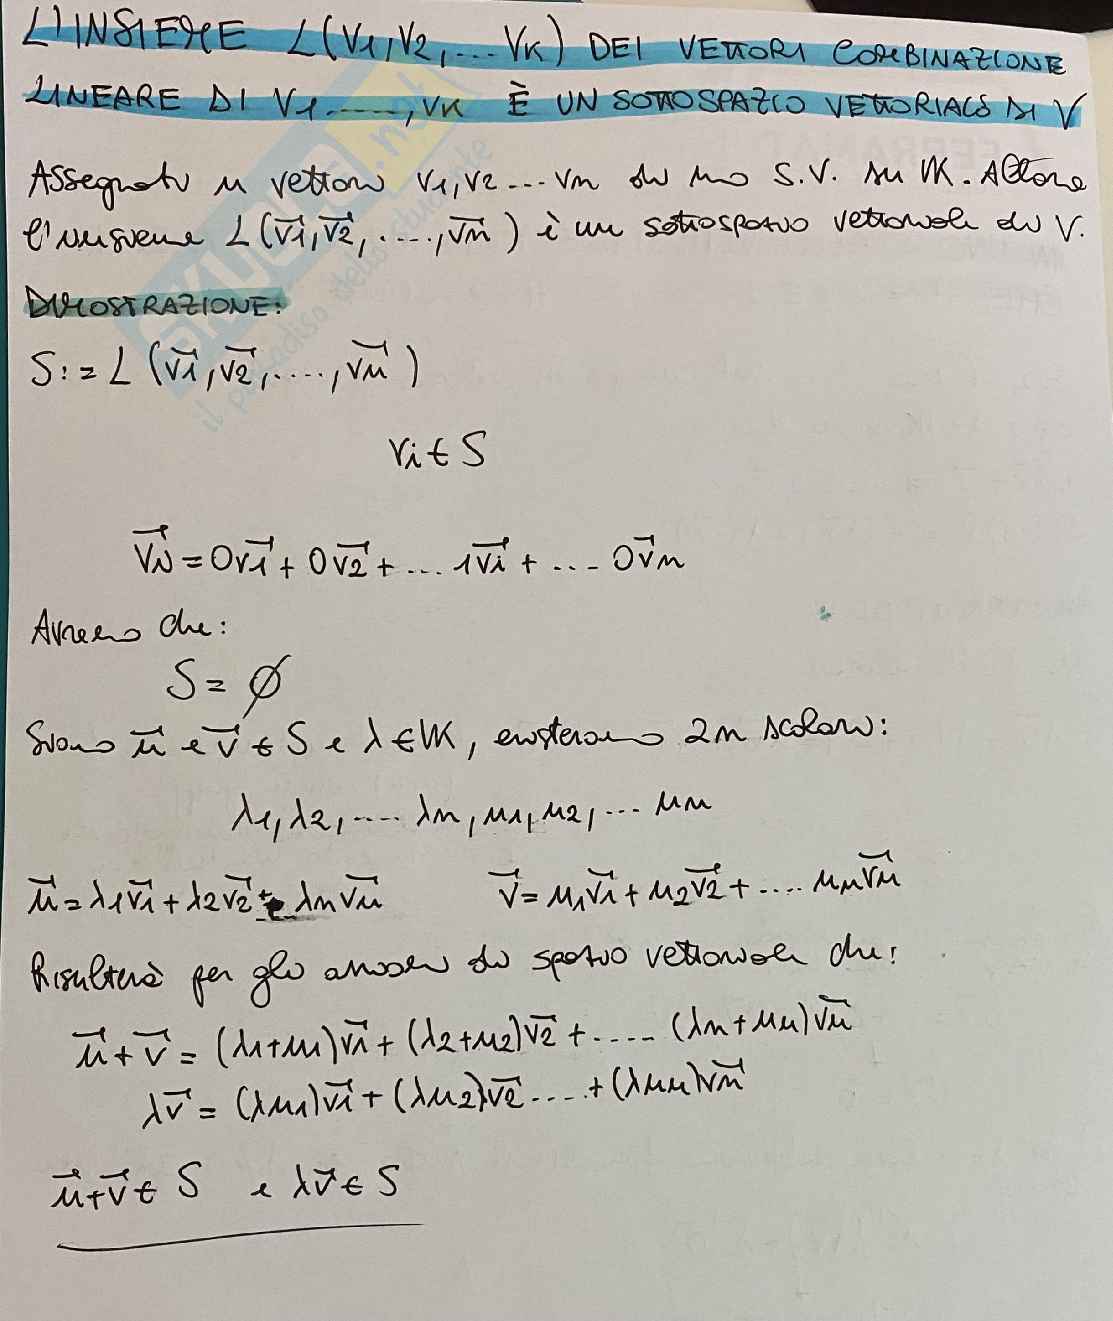 L'INSIEME L(V1,V2,... VK) DEI VETTORI COMBINAZIONE
LINEARE DI V1......,VK È UN SOTTOSPAZIO VETTORIALE DI V
Assegnati n vettori v1,v2...vn di uno S.V. su K. Allora
l'insieme L(v⃗1,v⃗2,....,v⃗n) è un sottospazio vettoriale di V.
DIMOSTRAZIONE:
S:=L(v⃗1,v⃗2,....,v⃗n)
vi∈S
v⃗i=0v⃗1+0v⃗2+...1v⃗i+...0v⃗n
Avremo che:
S=∅
Siano u⃗ e v⃗∈S e λ∈K, esisteranno 2n scalari:
λ1,λ2,....λn,μ1,μ2,...μn
u⃗=λ1v⃗1+λ2v⃗2+ λnv⃗n v⃗=μ1v⃗1+μ2v⃗2+....μnv⃗n
Risulterà per gli assiomi di spazio vettoriale che:
u⃗+v⃗=(λ1+μ1)v⃗1+(λ2+μ2)v⃗2+.....(λn+μn)v⃗n
λv⃗=(λμ1)v⃗1+(λμ2)v⃗2....+(λμn)v⃗n
u⃗+v⃗∈S e λv⃗∈S
SKUOLA.net
il paradiso dello studente